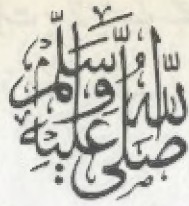 صَلَّى اللهُ عَلَيْهِ وَسَلَّمَ